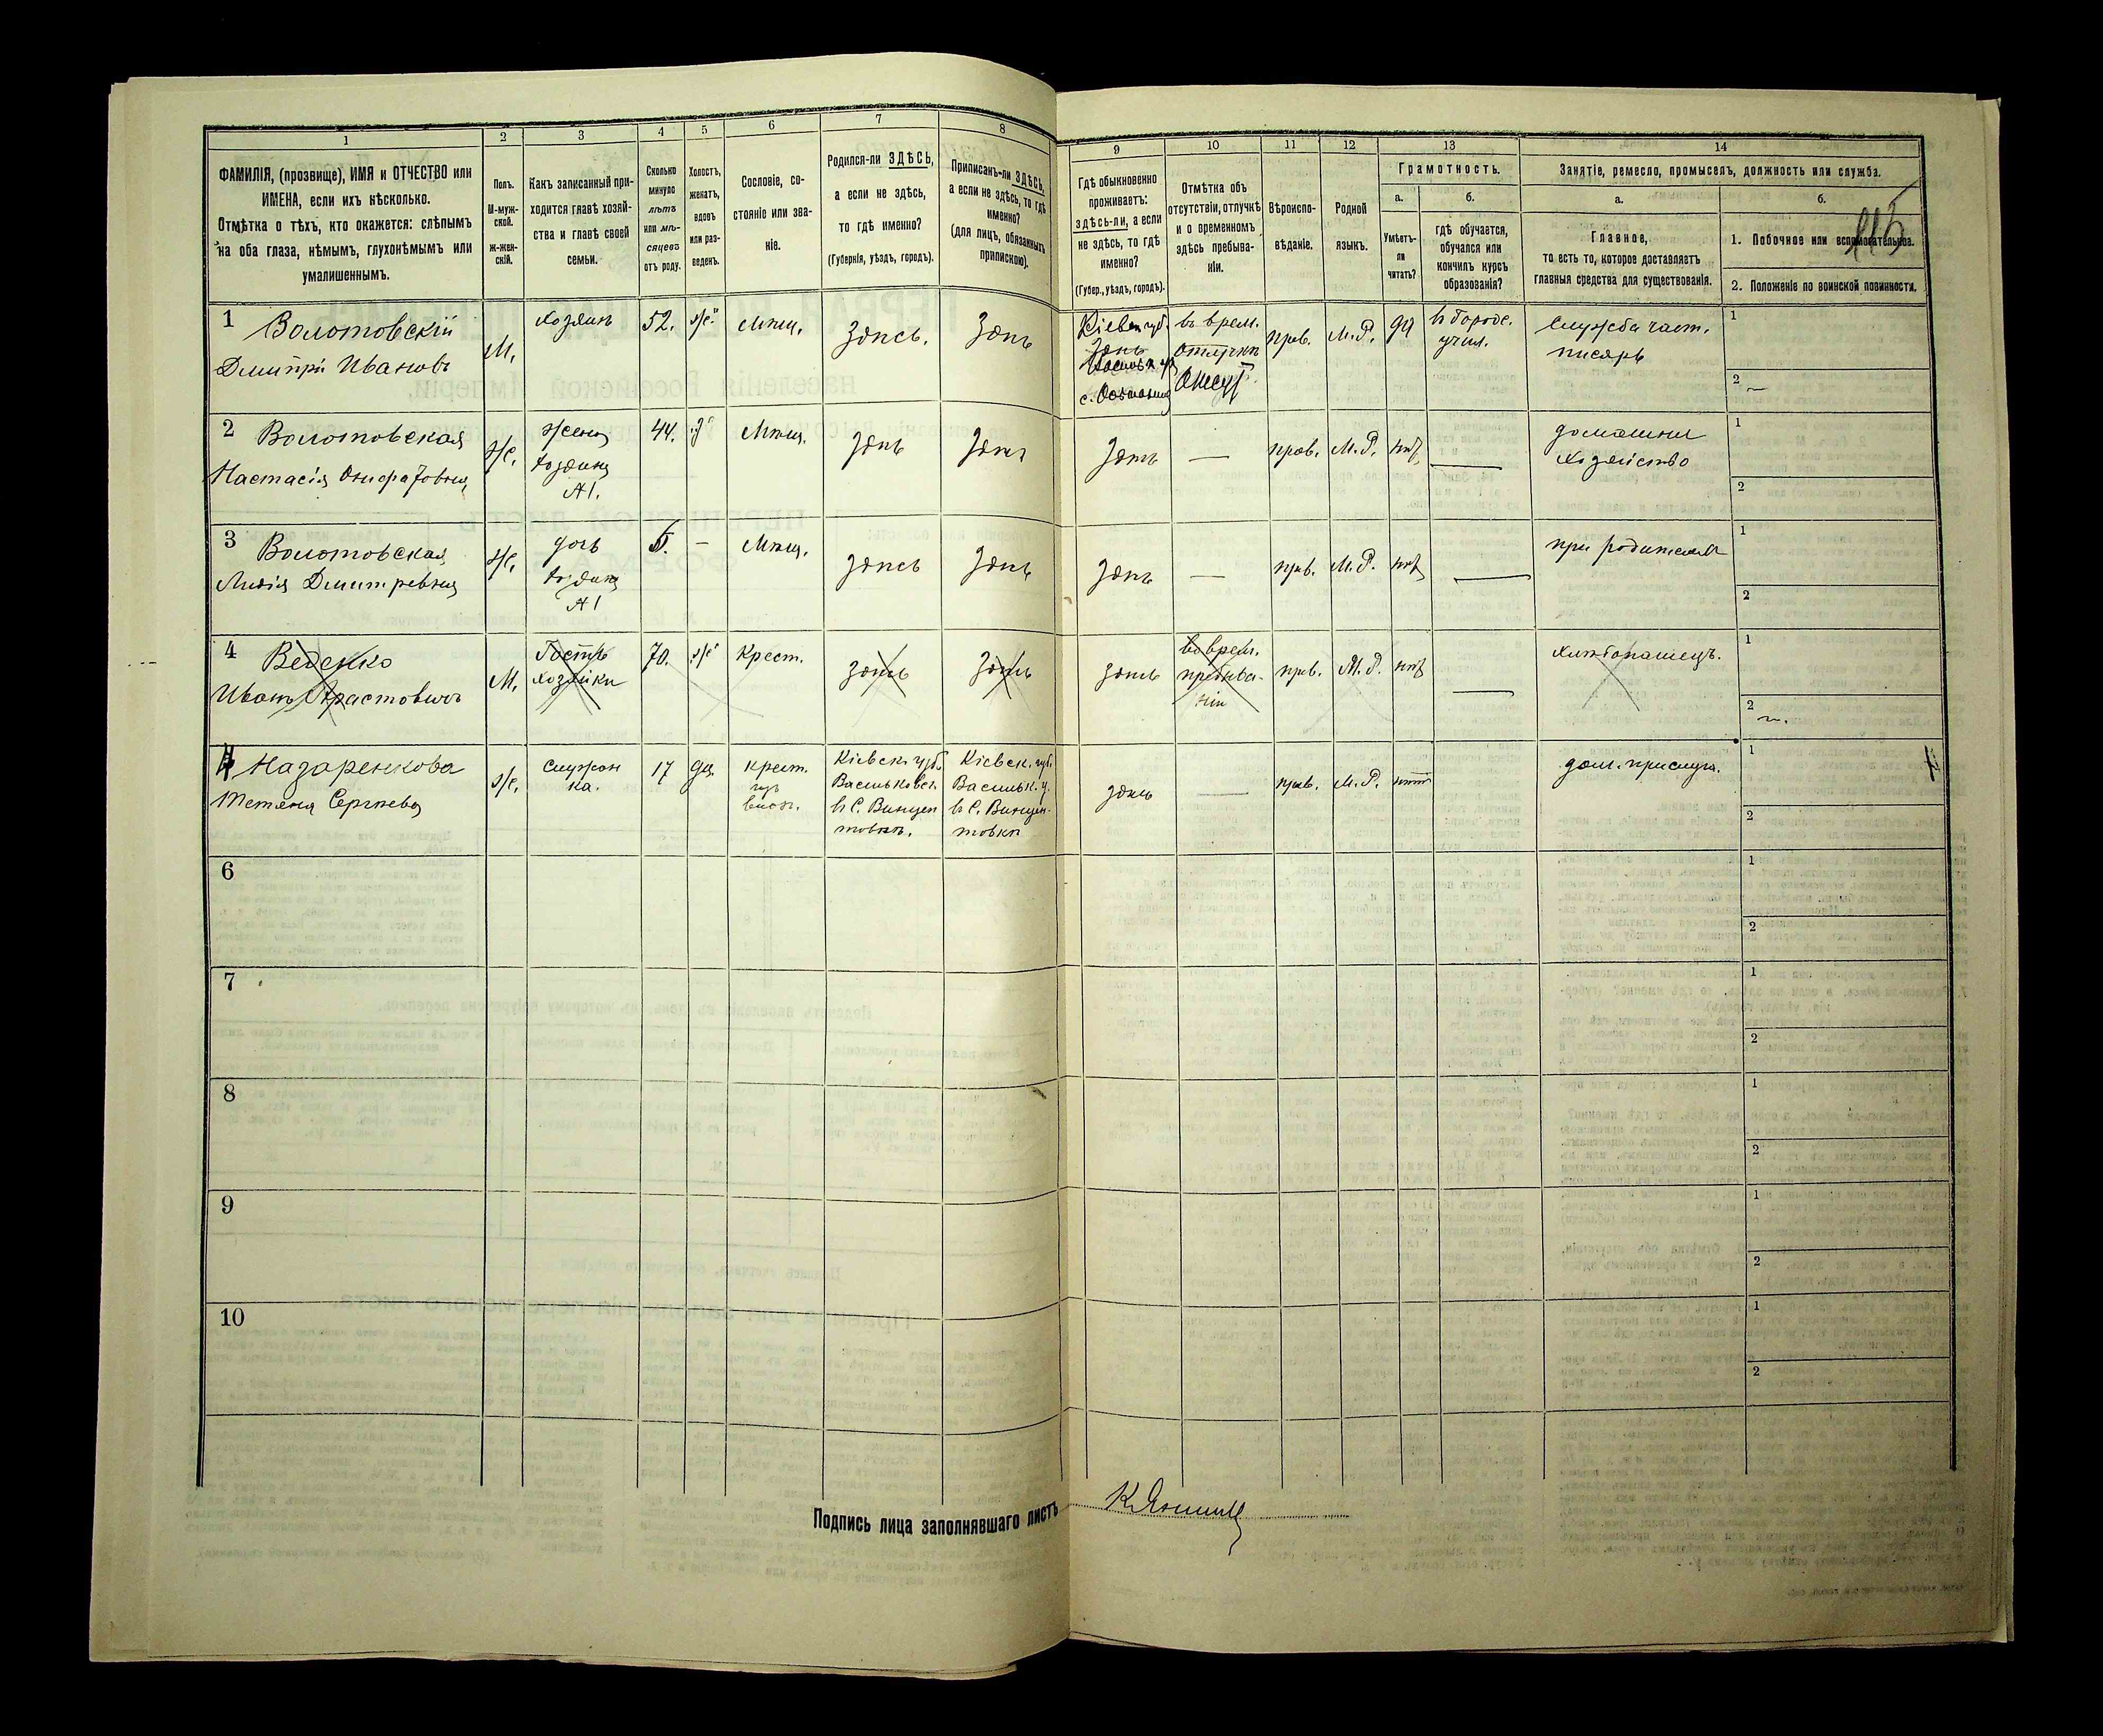 1
2
3
4
5
6
7
8
9
10
11
12
13
14
ФАМИЛІЯ, (прозвище), ИМЯ и ОТЧЕСТВО или
ИМЕНА, если ихъ нѣсколько.
Отмѣтка о тѣхъ, кто окажется: слѣпымъ
на оба глаза, нѣмымъ, глухонѣмымъ или
умалишеннымъ.
Полъ.
М-муж-
ской.
ж-жен-
скій.
Какъ записанный при-
ходится главѣ хозяй-
ства и главѣ своей
семьи.
Сколько
минуло
лѣтъ
или мѣ-
сяцевъ
отъ роду.
Холостъ,
женатъ,
вдовъ
или раз-
веденъ.
Сословіе, со-
стояніе или зва-
ніе.
Родился-ли ЗДѢСЬ,
а если не здѣсь,
то гдѣ именно?
(Губернія, уѣздъ, городъ).
Приписанъ-ли ЗДѢСЬ,
а если не здѣсь, то гдѣ
именно?
(для лицъ, обязанныхъ
припискою).
Гдѣ обыкновенно
проживаетъ:
здѣсь-ли, а если
не здѣсь, то гдѣ
именно?
(Губер., уѣздъ, городъ).
Отмѣтка объ
отсутствіи, отлучкѣ
и о временномъ
здѣсь пребыва-
ніи.
Вѣроиспо-
вѣданіе.
Родной
языкъ.
Грамотность.
а.
Умѣетъ-
ли
читать?
б.
гдѣ обучается,
обучался или
кончилъ курсъ
образованія?
Занятіе, ремесло, промыселъ, должность или служба.
а.
Главное,
то есть то, которое доставляетъ
главныя средства для существованія.
б.
1. Побочное или вспомогательное.
2. Положеніе по воинской повинности.
115
1
Волотовскій
Дмитрій Ивановъ
М.
хозяинъ
52.
ж.
Мѣщ.
Здѣсь.
Здѣсь
Кіевск. губ.
въ врем.
отлучкѣ
прав.
М.Р.
да
въ Город.
учил.
Служба част.
писарь
1
2
2
Волотовская
Настасія
ж.
жена
хозяина
№1.
44.
з.
Мѣщ.
здѣсь
здѣсь
здѣсь
—
прав.
М.Р.
нѣт
—
домашнее
хозяйство
1
2
3
Волотовская
Лидія Дмитревна
ж.
дочь
хозяина
№1
5.
—
Мѣщ.
здѣсь
здѣсь
здѣсь
—
прав.
М.Р.
нѣт
—
при родителяхъ
1
2
4
Веденко
Иванъ
М.
Гость
хозяйки
70.
ж.
Крест.
здѣсь
здѣсь
здѣсь
во врем.
пребыва-
ніи
прав.
М.Р.
нѣт
—
хлѣбопашецъ.
1
2
4
Назаренкова
Тетяна Сергѣева
ж.
служан
ка.
17
дѣ.
крест.
изъ
Кіевск. губ.
Васильковск.
въ С. Винцен
товкѣ.
Кіевск. губ.
Васильк. у.
въ С. Винцен-
товкѣ
здѣсь
—
прав.
М.Р.
нѣт
дом. прислуг.
1
2
6
1
2
7
1
2
8
1
2
9
1
2
10
1
2
Подпись лица заполнявшаго листъ